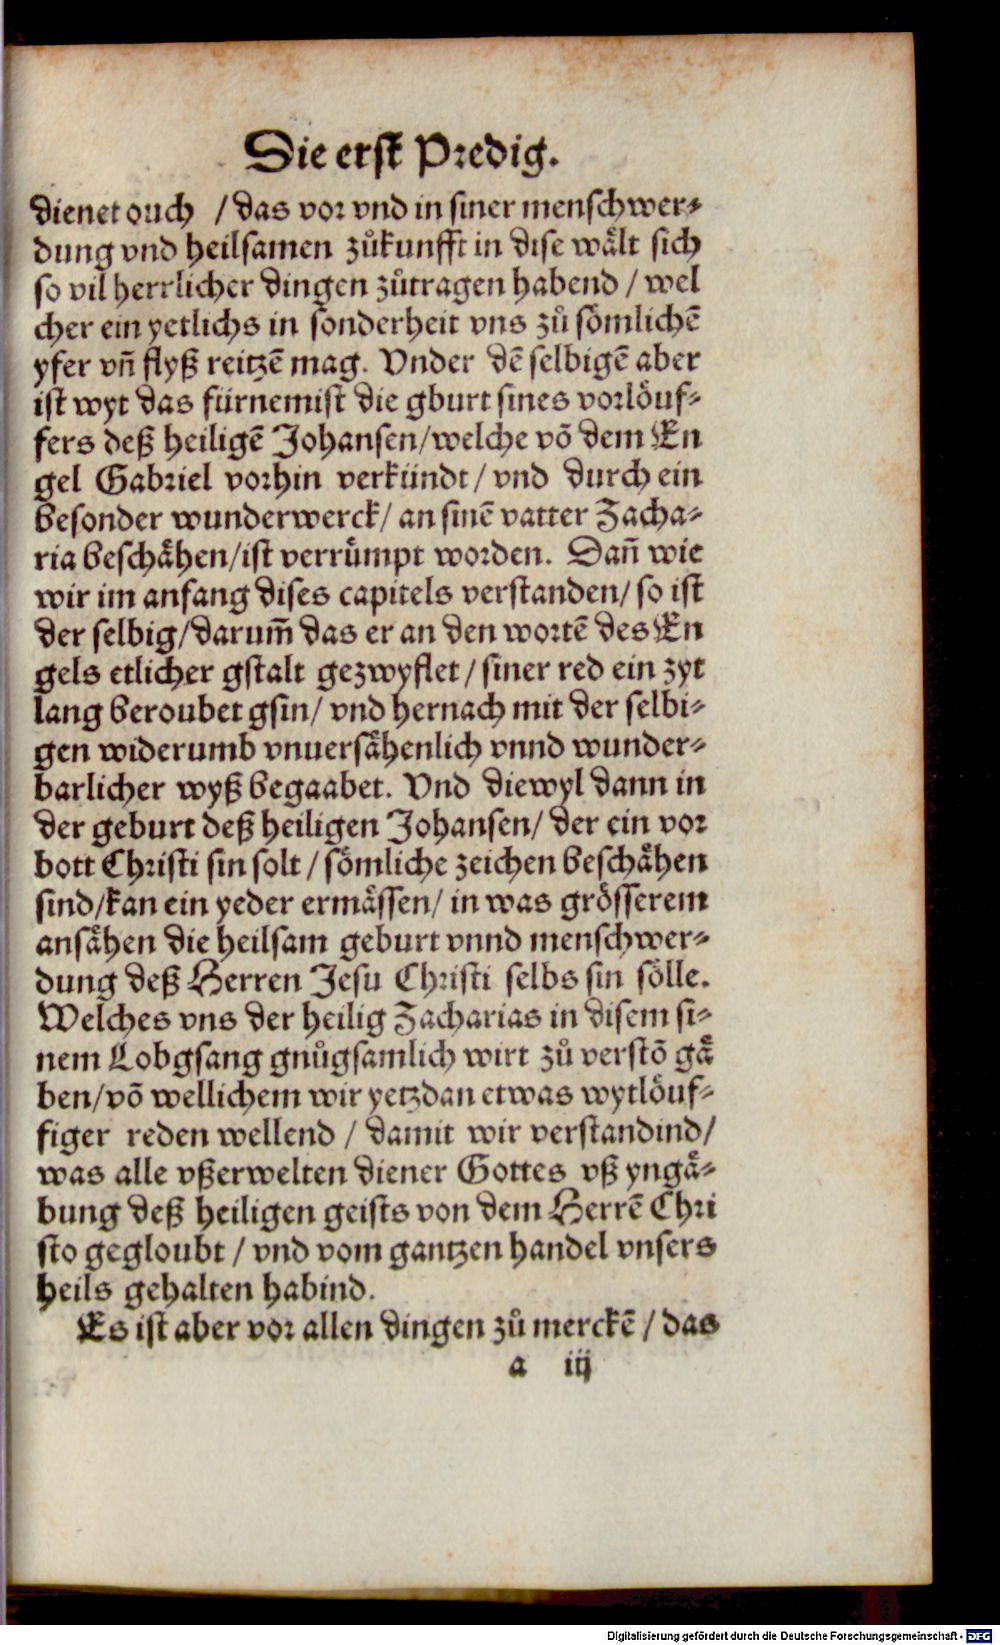 Die erst Predig.
dienet ouch / das vor vnd in siner menschwer⸗
dung vnd heilsamen zůkunfft in dise wält sich
so vil herrlicher dingen zůtragen habend / wel
cher ein yetlichs in sonderheit vns zů sömlichē
yfer vn̄ flyß reitzē mag. Vnder dē selbigē aber
ist wyt das fürnemist die gburt sines vorlöuf⸗
fers deß heiligē Johansen/welche vō dem En
gel Gabriel vorhin verkündt / vnd durch ein
besonder wunderwerck/ an sinē vatter Zacha⸗
ria beschähen/ist verrümpt worden. Dan̄ wie
wir im anfang dises capitels verstanden/ so ist
der selbig/darum̄ das er an den wortē des En
gels etlicher gstalt gezwyflet / siner red ein zyt
lang beroubet gsin/ vnd hernach mit der selbi⸗
gen widerumb vnuersähenlich vnnd wunder⸗
barlicher wyß begaabet. Vnd diewyl dann in
der geburt deß heiligen Johansen/ der ein vor
bott Christi sin solt / sömliche zeichen beschähen
sind/kan ein yeder ermässen/ in was grösserem
ansähen die heilsam geburt vnnd menschwer⸗
dung deß Herren Jesu Christi selbs sin sölle.
Welches vns der heilig Zacharias in disem si⸗
nem Lobgsang gnůgsamlich wirt zů verstō gä
ben/vō wellichem wir yetzdan etwas wytlöuf⸗
figer reden wellend / damit wir verstandind/
was alle vßerwelten diener Gottes vß yngä⸗
bung deß heiligen geists von dem Herrē Chri
sto gegloubt / vnd vom gantzen handel vnsers
heils gehalten habind.
Es ist aber vor allen dingen zů merckē / das
a iij
Digitalisierung gefördert durch die Deutsche Forschungsgemeinschaft - DFG